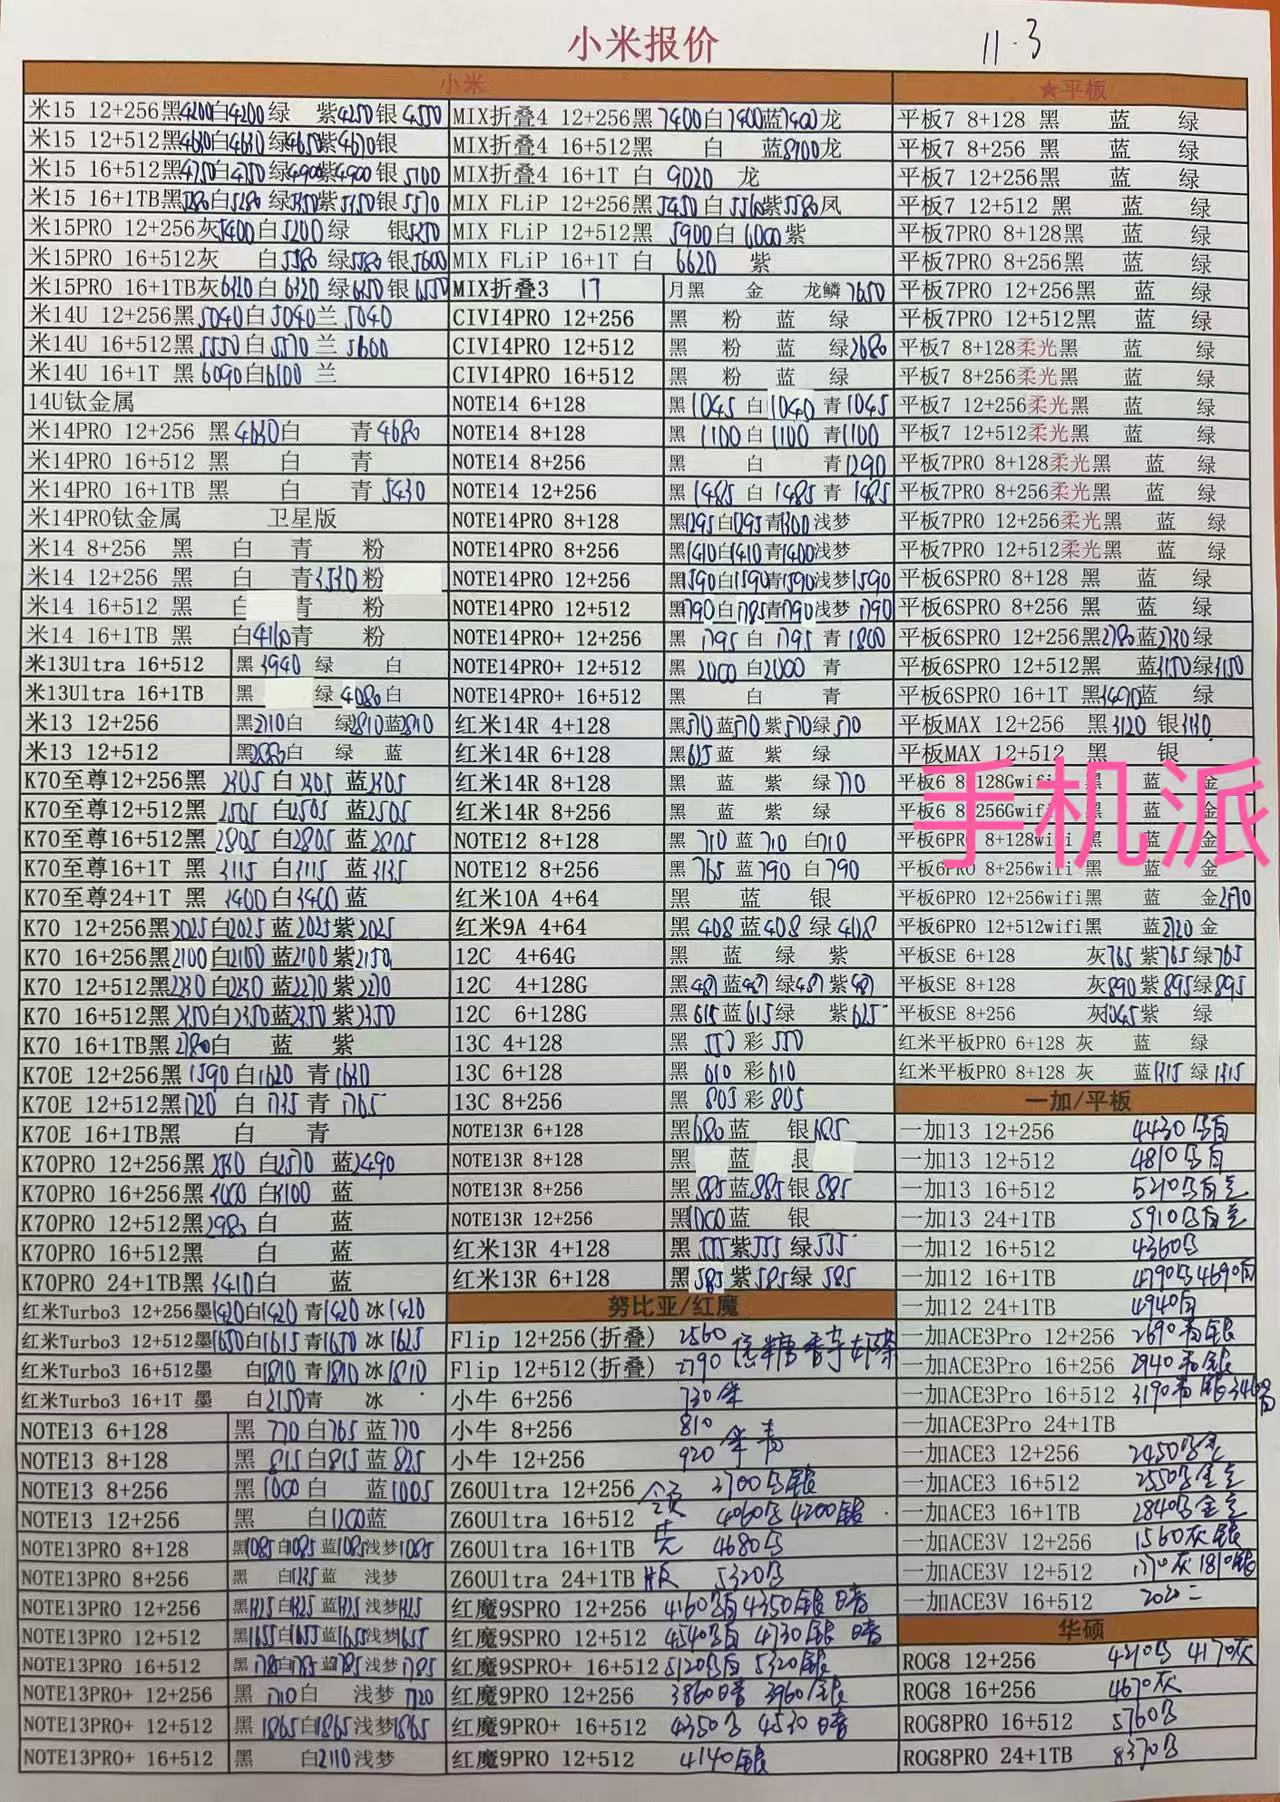 小米报价
11.3
小米
米15 12+256黑4200白4200绿 紫4250银4550
米15 12+512黑4630白4630绿4650紫4670银
米15 16+512黑4750白4750绿4900紫4900银5100
米15 16+1TB黑5280白5280绿5450紫5450银5570
米15PRO 12+256灰5400白5200绿 银5250
米15PRO 16+512灰 白5580绿5580银5600
米15PRO 16+1TB灰6320白6320绿6350银6550
米14U 12+256黑5040白5040兰5040
米14U 16+512黑5550白5570兰5600
米14U 16+1T 黑6090白6100兰
14U钛金属
米14PRO 12+256 黑4630白 青4680
米14PRO 16+512 黑 白 青
米14PRO 16+1TB 黑 白 青5430
米14PRO钛金属 卫星版
米14 8+256 黑 白 青 粉
米14 12+256 黑 白 青3530粉
米14 16+512 黑 青 粉
米14 16+1TB 黑 白4110青 粉
米13Ultra 16+512 黑3940 绿 白
米13Ultra 16+1TB 黑 绿4080白
米13 12+256 黑2710白 绿2810蓝2810
米13 12+512 黑2880白 绿 蓝
K70至尊12+256黑 2305 白2305 蓝2305
K70至尊12+512黑 2505 白2505 蓝2505
K70至尊16+512黑 2805 白2805 蓝2805
K70至尊16+1T 黑 3115 白3115 蓝3135
K70至尊24+1T 黑 3400白3400蓝
K70 12+256黑2025白2025蓝2025紫2025
K70 16+256黑2100白2100蓝2100紫2150
K70 12+512黑2230白2230蓝2270紫2270
K70 16+512黑2350白2350蓝2350紫2350
K70 16+1TB黑2780白 蓝 紫
K70E 12+256黑1590白1620青1630
K70E 12+512黑1720 白1735青1765
K70E 16+1TB黑 白 青
K70PRO 12+256黑2530 白2570 蓝2490
K70PRO 16+256黑3000白3100 蓝
K70PRO 12+512黑2980白 蓝
K70PRO 16+512黑 白 蓝
K70PRO 24+1TB黑3410白 蓝
红米Turbo3 12+256墨1420白1420青1420冰1420
红米Turbo3 12+512墨1650白1615青1650冰1625
红米Turbo3 16+512墨 白1810青1810冰1810
红米Turbo3 16+1T 墨 白2150青 冰
NOTE13 6+128 黑 770白765蓝770
NOTE13 8+128 黑 815白815蓝825
NOTE13 8+256 黑1000白 蓝1005
NOTE13 12+256 黑 白1200蓝
NOTE13PRO 8+128 黑1085白1085蓝1085浅梦1085
NOTE13PRO 8+256 黑 白1235蓝 浅梦
NOTE13PRO 12+256 黑1425白1425蓝1425浅梦1425
NOTE13PRO 12+512 黑1655白1655蓝1655浅梦1655
NOTE13PRO 16+512 黑1785白1785蓝1785浅梦1785
NOTE13PRO+ 12+256 黑1710白 浅梦1720
NOTE13PRO+ 12+512 黑1865白1865浅梦1865
NOTE13PRO+ 16+512 黑 白2110浅梦
MIX折叠4 12+256黑7400白7400蓝7400龙
MIX折叠4 16+512黑 白 蓝8100龙
MIX折叠4 16+1T 白 9020 龙
MIX FLiP 12+256黑5450白5560紫5580凤
MIX FLiP 12+512黑 5900白6000紫
MIX FLiP 16+1T 白 6620 紫
MIX折叠3 17 月黑 金 龙鳞7650
CIVI4PRO 12+256 黑 粉 蓝 绿
CIVI4PRO 12+512 黑 粉 蓝 绿2680
CIVI4PRO 16+512 黑 粉 蓝 绿
NOTE14 6+128 黑1045白1040青1045
NOTE14 8+128 黑 1100白1100 青1100
NOTE14 8+256 黑 白 青1290
NOTE14 12+256 黑1485白1485青1485
NOTE14PRO 8+128 黑1295白1295青1300浅梦
NOTE14PRO 8+256 黑1410白1410青1400浅梦
NOTE14PRO 12+256 黑1590白1590青1590浅梦1590
NOTE14PRO 12+512 黑1790白1785青1790浅梦1790
NOTE14PRO+ 12+256 黑 1795白1795青1800
NOTE14PRO+ 12+512 黑 2000白2000 青
NOTE14PRO+ 16+512 黑 白 青
红米14R 4+128 黑570蓝570紫570绿570
红米14R 6+128 黑625蓝 紫 绿
红米14R 8+128 黑 蓝 紫 绿770
红米14R 8+256 黑 蓝 紫 绿
NOTE12 8+128 黑 710蓝710 白710
NOTE12 8+256 黑 765蓝790 白790
红米10A 4+64 黑 蓝 银
红米9A 4+64 黑408蓝408绿408
12C 4+64G 黑 蓝 绿 紫
12C 4+128G 黑487蓝487绿487紫487
12C 6+128G 黑615蓝615绿 紫625
13C 4+128 黑 550彩550
13C 6+128 黑 610彩610
13C 8+256 黑 805彩805
NOTE13R 6+128 黑680蓝 银685
NOTE13R 8+128 黑 蓝 银
NOTE13R 8+256 黑885蓝885银885
NOTE13R 12+256 黑1000蓝 银
红米13R 4+128 黑 555紫555绿555
红米13R 6+128 黑585紫585绿585
努比亚/红魔
Flip 12+256(折叠) 2560
Flip 12+512(折叠) 2790
小牛 6+256 730
小牛 8+256 810
小牛 12+256 920 青
Z60Ultra 12+256 3700 银
Z60Ultra 16+512 4060 4200银
Z60Ultra 16+1TB 4680
Z60Ultra 24+1TB 5320
领先版
红魔9SPRO 12+256 4160 4350银 暗
红魔9SPRO 12+512 4540 4730银 暗
红魔9SPRO+ 16+512 5120 5320银
红魔9PRO 12+256 3860暗 3960银
红魔9PRO+ 16+512 4350 4530暗
红魔9PRO 12+512 4140银
★平板
平板7 8+128 黑 蓝 绿
平板7 8+256 黑 蓝 绿
平板7 12+256黑 蓝 绿
平板7 12+512 黑 蓝 绿
平板7PRO 8+128黑 蓝 绿
平板7PRO 8+256黑 蓝 绿
平板7PRO 12+256黑 蓝 绿
平板7PRO 12+512黑 蓝 绿
平板7 8+128柔光黑 蓝 绿
平板7 8+256柔光黑 蓝 绿
平板7 12+256柔光黑 蓝 绿
平板7 12+512柔光黑 蓝 绿
平板7PRO 8+128柔光黑 蓝 绿
平板7PRO 8+256柔光黑 蓝 绿
平板7PRO 12+256柔光黑 蓝 绿
平板7PRO 12+512柔光黑 蓝 绿
平板6SPRO 8+128 黑 蓝 绿
平板6SPRO 8+256 黑 蓝 绿
平板6SPRO 12+256黑2780蓝2730绿
平板6SPRO 12+512黑 蓝3150绿3150
平板6SPRO 16+1T 黑3470蓝 绿
平板MAX 12+256 黑3120 银3130
平板MAX 12+512 黑 银
平板6 8+128Gwifi 黑 蓝 金
平板6 8+256Gwifi 黑 蓝 金
平板6PRO 8+128wifi 黑 蓝 金
平板6PRO 8+256wifi 黑 蓝 金
平板6PRO 12+256wifi黑 蓝 金2570
平板6PRO 12+512wifi黑 蓝2720金
平板SE 6+128 灰765紫765绿765
平板SE 8+128 灰890紫895绿895
平板SE 8+256 灰1045紫 绿
红米平板PRO 6+128 灰 蓝 绿
红米平板PRO 8+128 灰 蓝1315绿1315
手机派
一加/平板
一加13 12+256 4430
一加13 12+512 4810
一加13 16+512 5210
一加13 24+1TB 5910
一加12 16+512 4360
一加12 16+1TB 4790 4690白
一加12 24+1TB 4940白
一加ACE3Pro 12+256 2690青银
一加ACE3Pro 16+256 2940青银
一加ACE3Pro 16+512 3190青银
一加ACE3Pro 24+1TB
一加ACE3 12+256 2450
一加ACE3 16+512 2550
一加ACE3 16+1TB 2840
一加ACE3V 12+256 1560灰银
一加ACE3V 12+512 1770灰1810银
一加ACE3V 16+512
华硕
ROG8 12+256 4210 4170灰
ROG8 16+256 4670灰
ROG8PRO 16+512 5760
ROG8PRO 24+1TB 8370